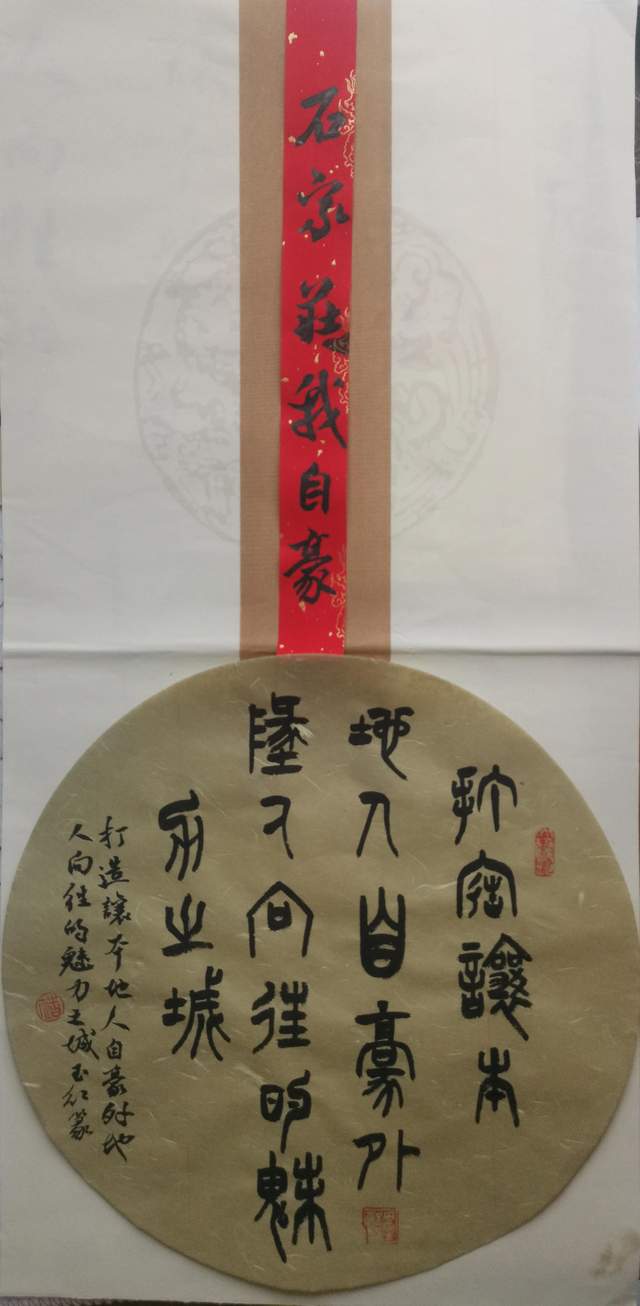 石家莊我自豪
打造讓本
地人自豪外
地人向往的魅
力之城
打造讓本地人自豪外地
人向往的魅力之城玉篆